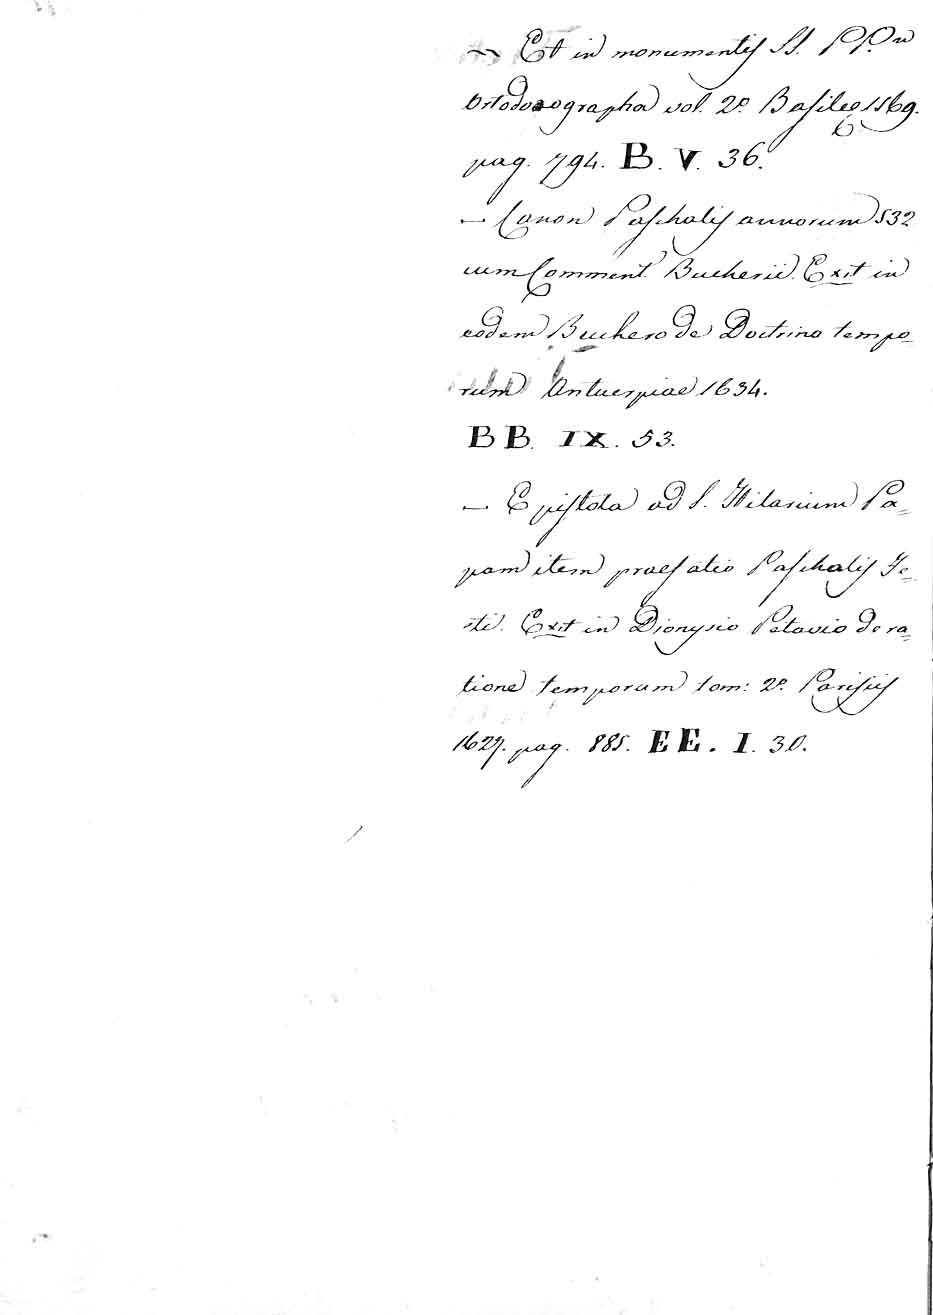 — Et in monumentis SS. PP.m
Ortodoxographa vol. 2º Basileę 1569.
pag. 794. B. V. 36.
— Canon Paschalis annorum 532
cum Comment. Bucherii. Exit in
eodem Buchero de Doctrina tempo-
rum Antuerpiae 1634.
BB. IX. 53.
— Epistola ad S. Hilarium Pa=
pam item praefatio Paschalis Fe=
sti. Exit in Dionysio Petavio de ra=
tione temporum tom: 2º Parisiis
1627. pag. 885. EE. I. 30.